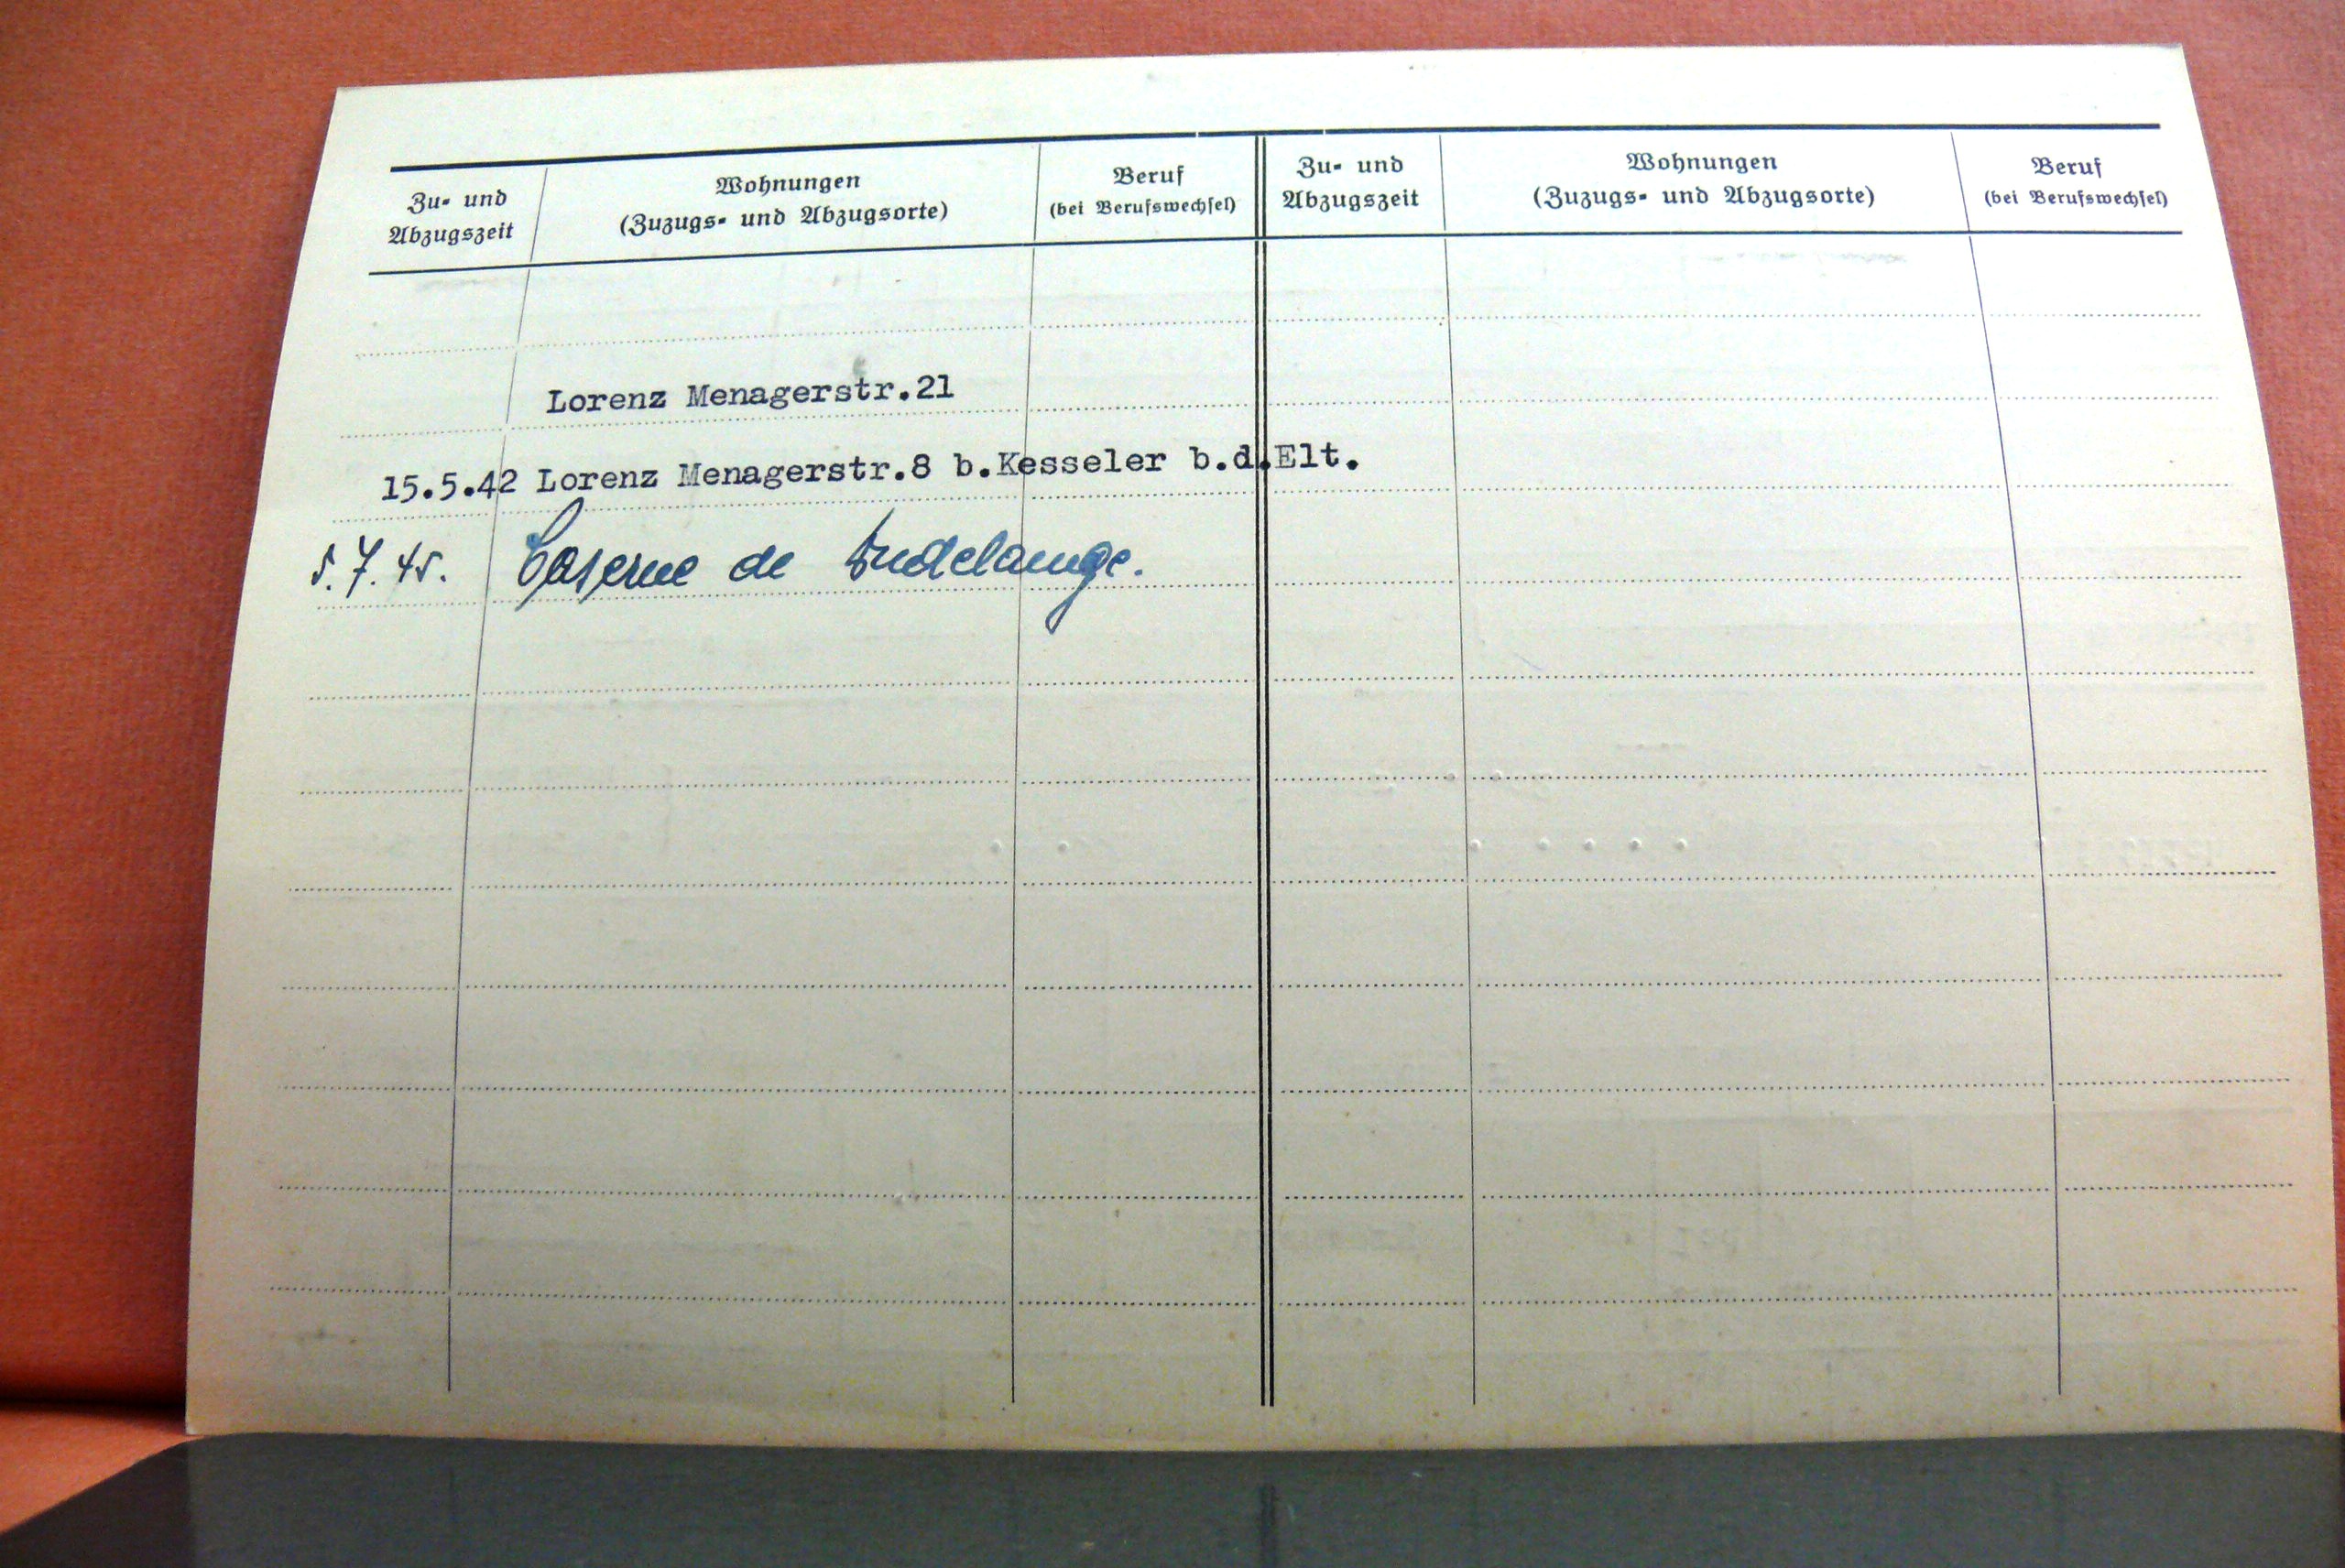 Zu- und Abzugszeit
Wohnungen
(Zuzugs- und Abzugsorte)
Beruf
(bei Berufswechsel)
Zu- und Abzugszeit
Wohnungen
(Zuzugs- und Abzugsorte)
Beruf
(bei Berufswechsel)
Lorenz Menagerstr.21
15.5.42 Lorenz Menagerstr.8 b.Kesseler b.d.Elt.
5.7.45. Caserne de Dudelange.